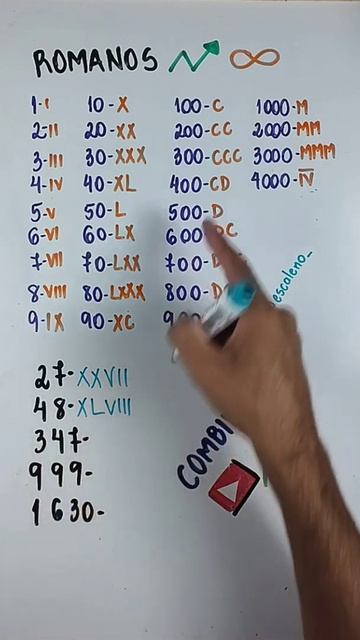 ROMANOS
1-I 10-X 100-C 1000-M
2-II 20-XX 200-CC 2000-MM
3-III 30-XXX 300-CCC 3000-MMM
4-IV 40-XL 400-CD 4000-I̅V̅
5-V 50-L 500-D
6-VI 60-LX 600 C
7-VII 70-LXX 700-D
8-VIII 80-LXXX 800-D
9-IX 90-XC
escaleno_
27-XXVII
48-XLVIII
347-
999-
1630-
COMBI